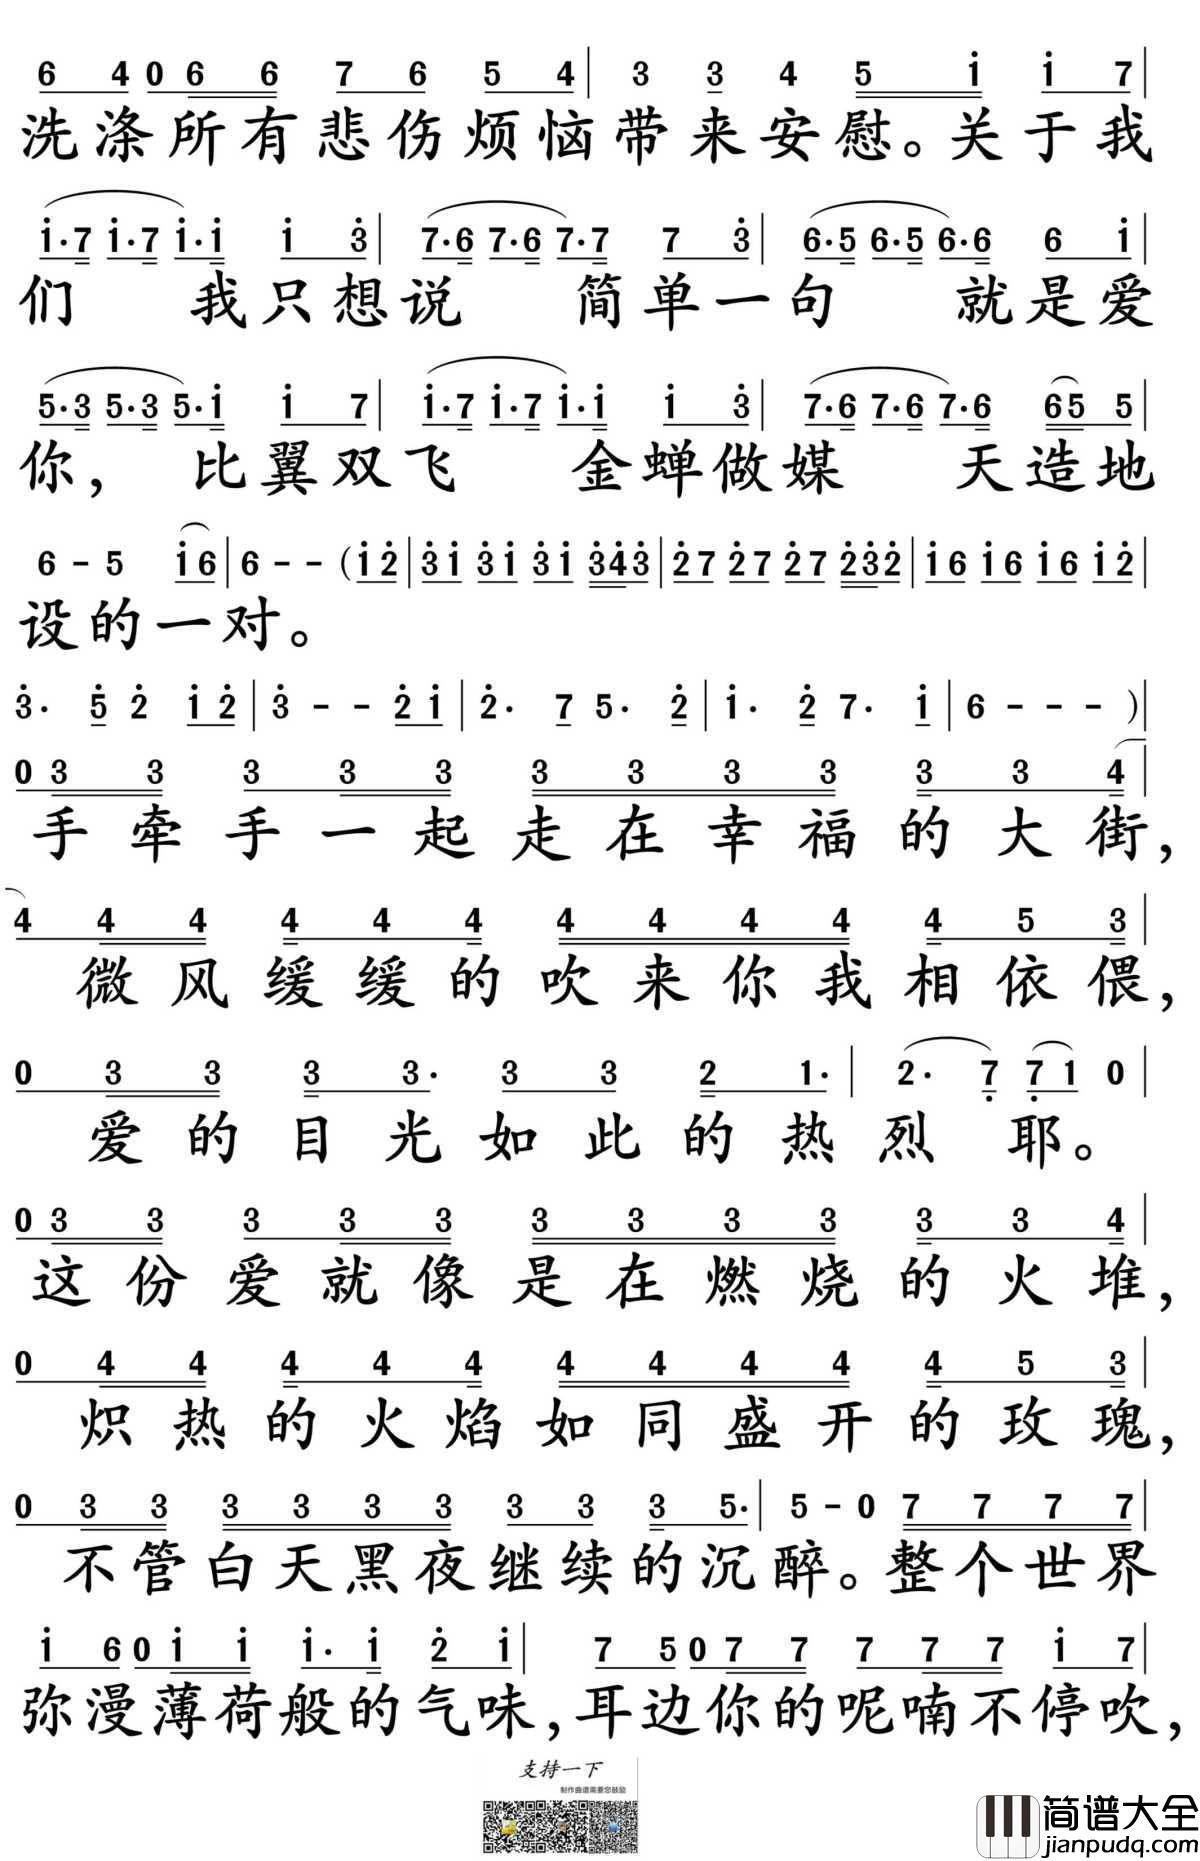 6 4 0 6 6 7 6 5 4 | 3 3 4 5 i i 7
洗涤所有悲伤烦恼带来安慰。关于我
i·7 i·7 i·i i 3̇ | 7·6 7·6 7·7 7 3̇ | 6·5 6·5 6·6 6 i |
们 我只想说 简单一句 就是爱
5·3 5·3 5·i i 7 | i·7 i·7 i·i i 3̇ | 7·6 7·6 7·6 65 5 |
你, 比翼双飞 金蝉做媒 天造地
6 - 5 i6 | 6 - - (i2̇ | 3̇i 3̇i 3̇i 3̇4̇3̇ | 2̇7 2̇7 2̇7 2̇3̇2̇ | i6 i6 i6 i2̇ |
设的一对。
3̇· 5̇ 2̇ i2̇ | 3̇ - - 2̇i | 2̇· 7 5· 2̇ | i· 2̇ 7· i | 6 - - - )|
0 3 3 3 3 3 3 3 3 3 3 3 4 |
手牵手一起走在幸福的大街,
4 4 4 4 4 4 4 4 4 4 4 5 3 |
微风缓缓的吹来你我相依偎,
0 3 3 3 3· 3 3 2 1· | 2· 7̣ 7̣1 0 |
爱的目光如此的热烈 耶。
0 3 3 3 3 3 3 3 3 3 3 3 4 |
这份爱就像是在燃烧的火堆,
0 4 4 4 4 4 4 4 4 4 4 5 3 |
炽热的火焰如同盛开的玫瑰,
0 3 3 3 3 3 3 3 3 3 5· | 5 - 0 7 7 7 7 |
不管白天黑夜继续的沉醉。整个世界
i 6 0 i i i· i 2̇ i | 7 5 0 7 7 7 7 7 i 7 |
弥漫薄荷般的气味,耳边你的呢喃不停吹,
支持一下
制作曲谱需要您鼓励
简谱大全
jianpudq.com